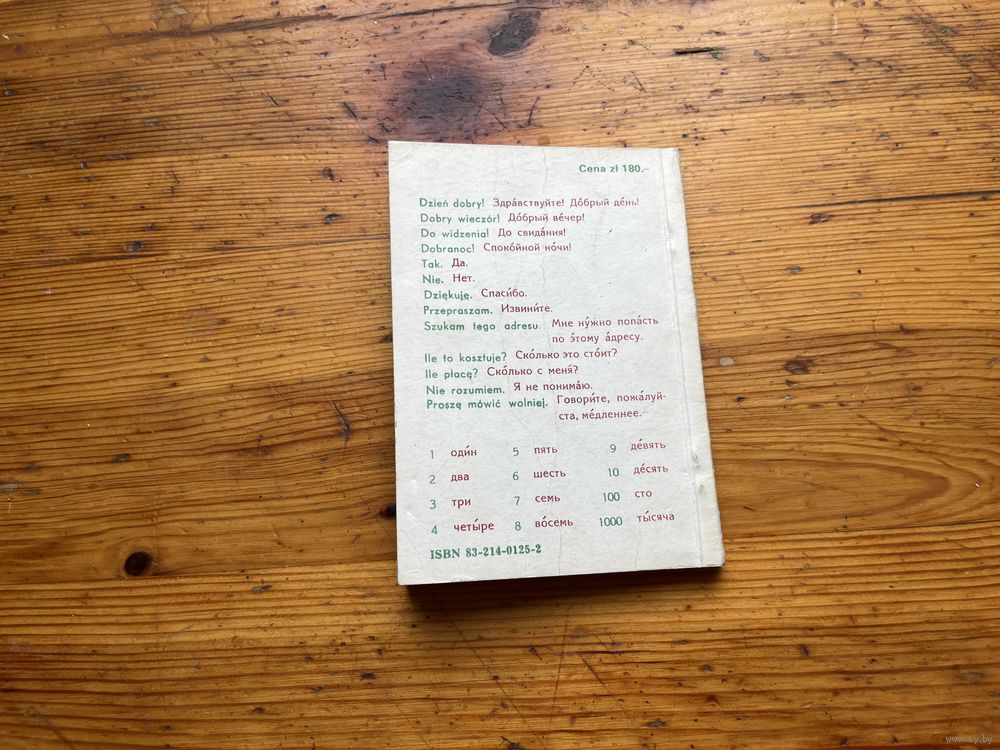 Cena zł 180,–
Dzień dobry! Здра́вствуйте! До́брый де́нь!
Dobry wieczór! До́брый ве́чер!
Do widzenia! До свида́ния!
Dobranoc! Споко́йной но́чи!
Tak. Да.
Nie. Нет.
Dziękuję. Спаси́бо.
Przepraszam. Извини́те.
Szukam tego adresu. Мне ну́жно попа́сть
по э́тому а́дресу.
Ile to kosztuje? Ско́лько это сто́ит?
Ile płacę? Ско́лько с меня́?
Nie rozumiem. Я не понима́ю.
Proszę mówić wolniej. Говори́те, пожа́луй-
ста, ме́дленнее.
1 оди́н 5 пять 9 де́вять
2 два 6 шесть 10 де́сять
3 три 7 семь 100 сто
4 четы́ре 8 во́семь 1000 ты́сяча
ISBN 83-214-0125-2
www.ay.by